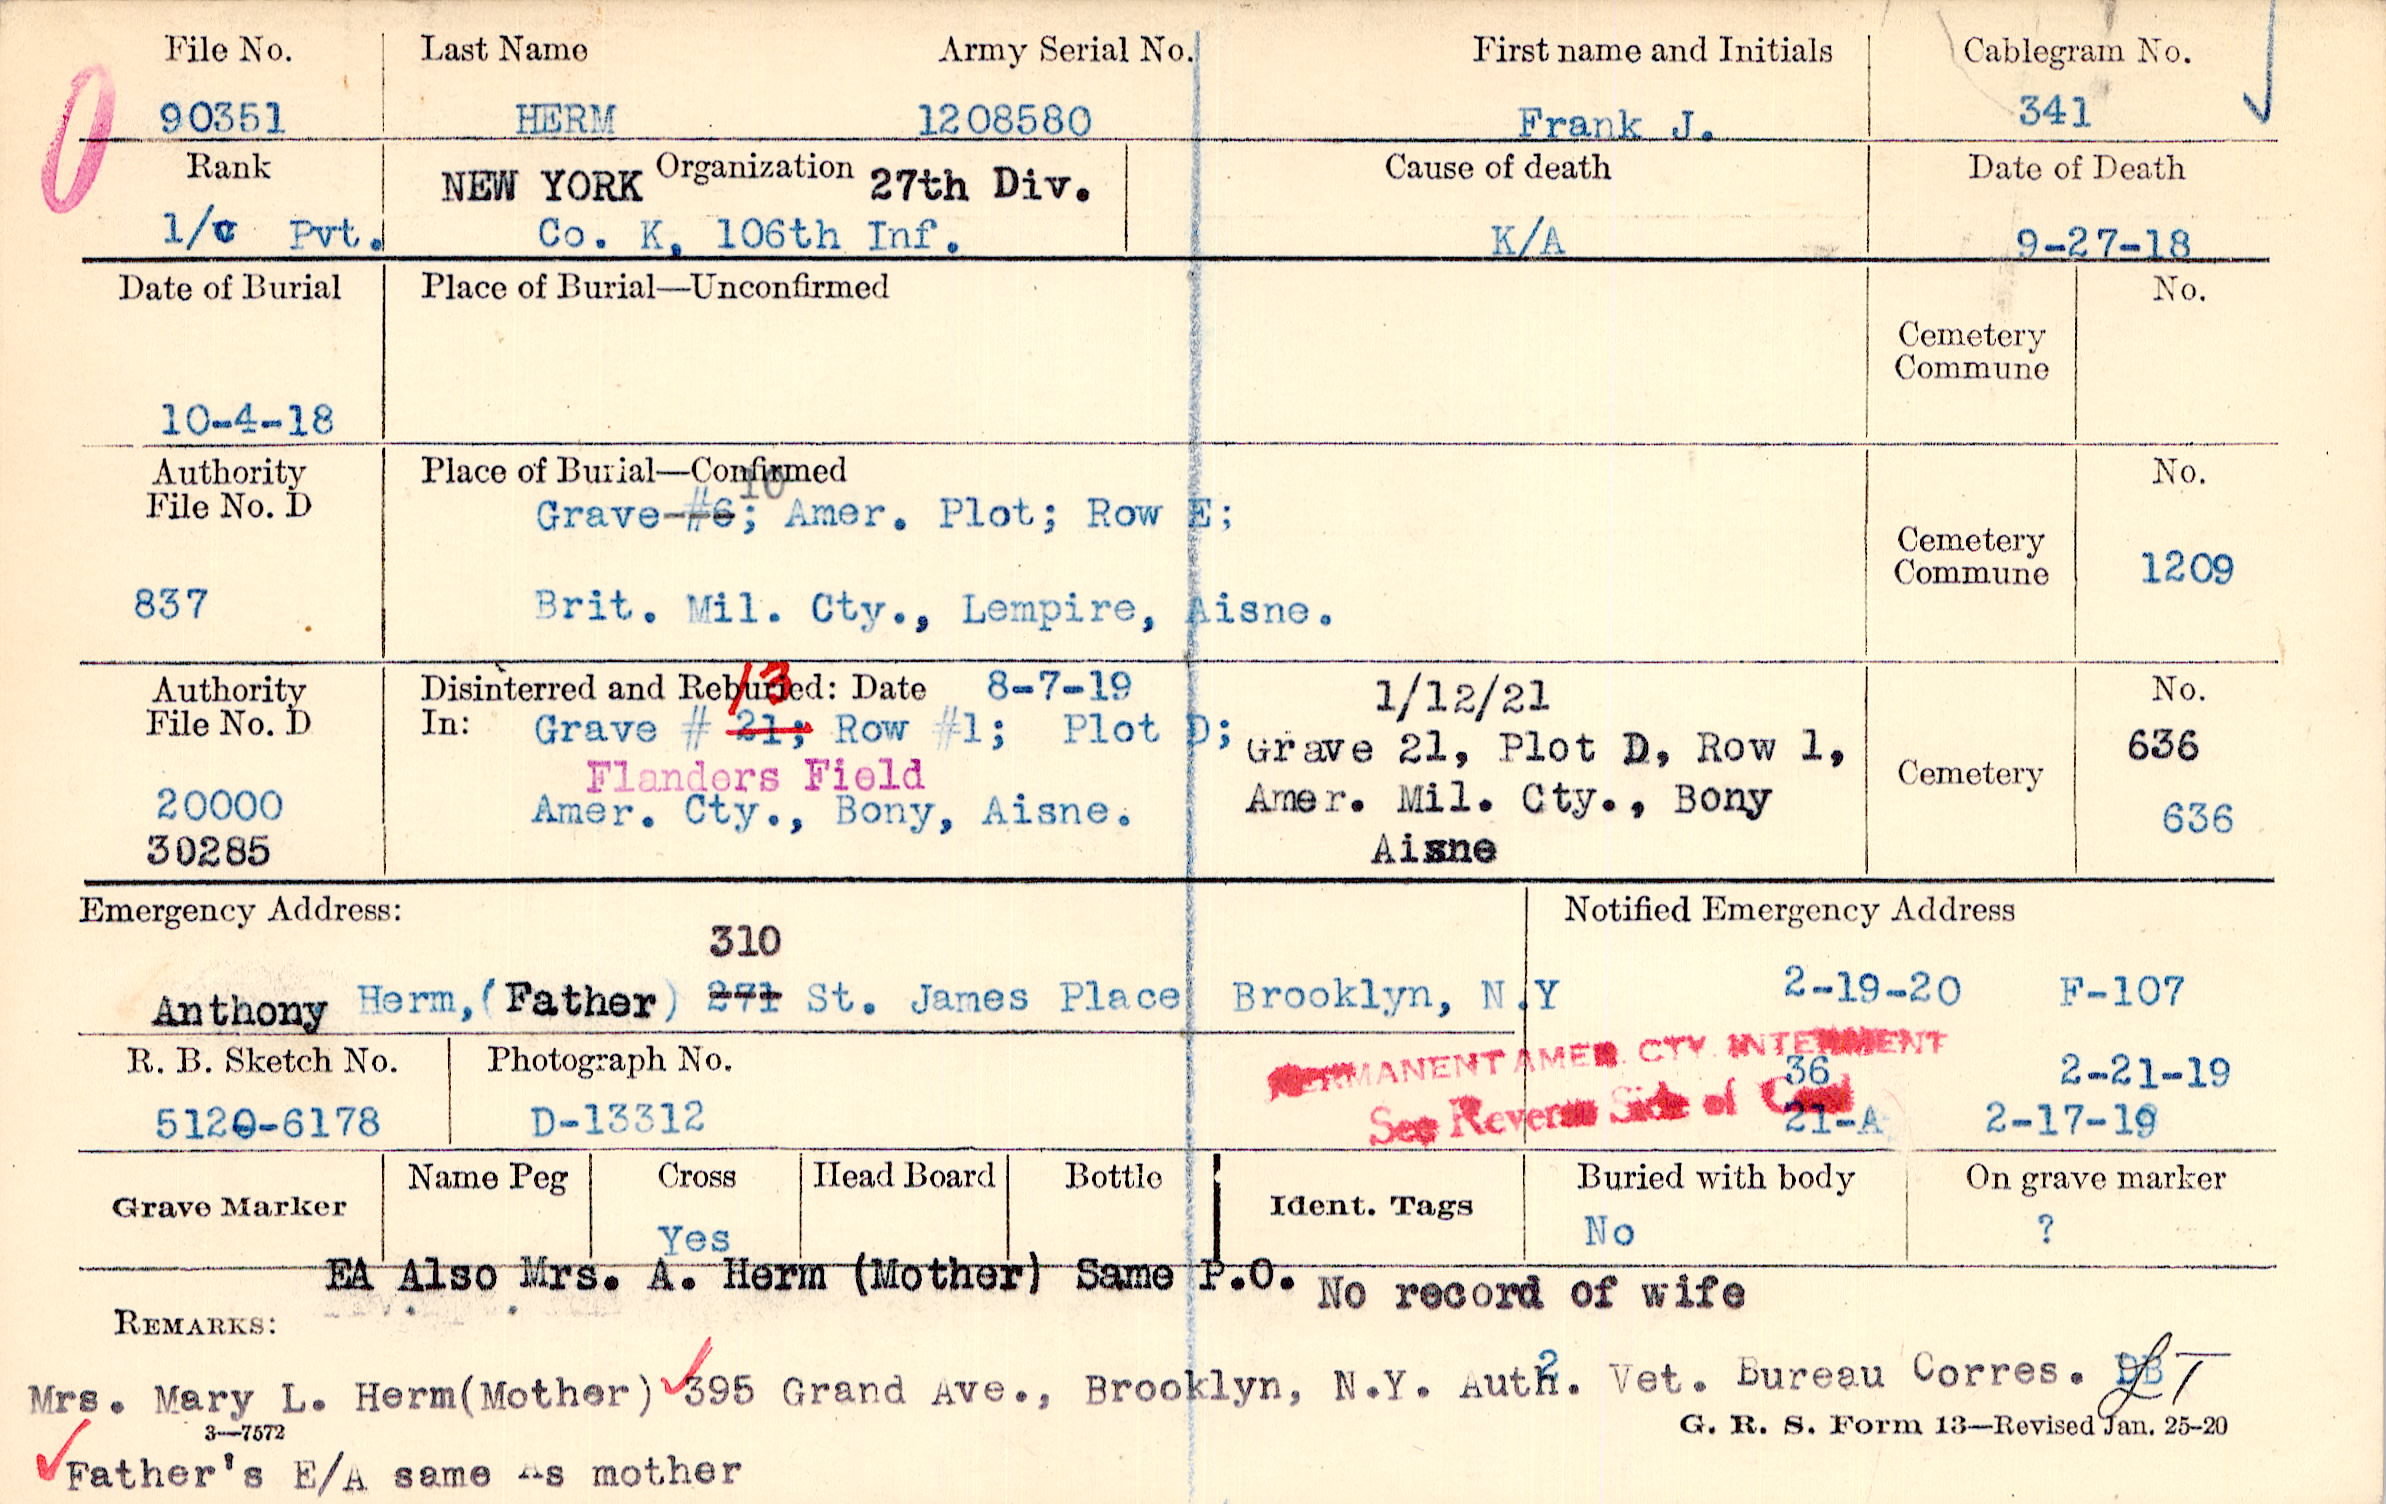 File No. Last Name Army Serial No. First name and Initials Cablegram No.
90351 HERM 1208580 Frank J. 341
Rank NEW YORK Organization 27th Div. Cause of death Date of Death
1/c Pvt. Co. K, 106th Inf. K/A 9-27-18
Date of Burial Place of Burial—Unconfirmed No.
Cemetery
Commune
10-4-18
Authority Place of Burial—Confirmed No.
File No. D 10
Grave #6; Amer. Plot; Row E;
Cemetery
Commune 1209
837 Brit. Mil. Cty., Lempire, Aisne.
Authority Disinterred and Reburied: Date 8-7-19 1/12/21 No.
13
File No. D In: Grave # 21; Row #1; Plot D; Grave 21, Plot D, Row 1, 636
Flanders Field Cemetery
20000 Amer. Cty., Bony, Aisne. Amer. Mil. Cty., Bony 636
30285 Aisne
Emergency Address: Notified Emergency Address
310
Anthony Herm, (Father) 271 St. James Place Brooklyn, N.Y 2-19-20 F-107
R. B. Sketch No. Photograph No. PERMANENT AMER. CTY. INTERMENT
36 2-21-19
5120-6178 D-13312 See Reverse Side of Card 21-A 2-17-19
Grave Marker Name Peg Cross Head Board Bottle Ident. Tags Buried with body On grave marker
Yes No ?
EA Also Mrs. A. Herm (Mother) Same P.O. No record of wife
REMARKS:
2
Mrs. Mary L. Herm(Mother) 395 Grand Ave., Brooklyn, N.Y. Auth. Vet. Bureau Corres. DB
3—7572 G. R. S. Form 13—Revised Jan. 25-20
Father's E/A same As mother